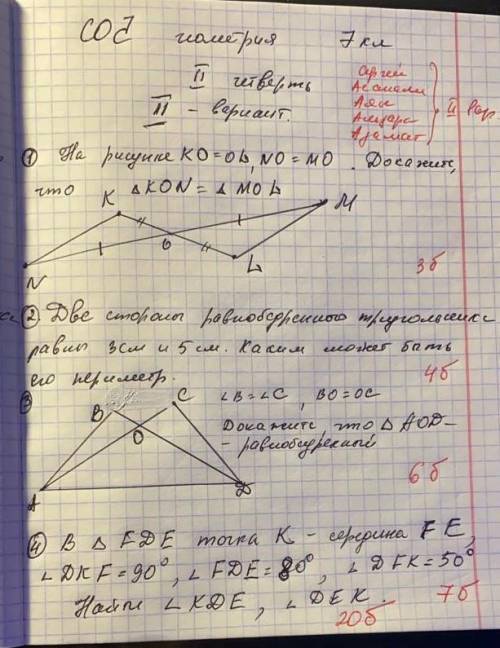 СОЧ геометрия 7 кл
II четверть
II - вариант.
Сергей
Асанали
Аян
Амира
Адамат
II вар
① На рисунке KO=OL, NO=MO. Докажите,
что △KON=△MOL
K
M
O
L
N
3б
② Две стороны равнобедренного треугольника
равны 3см и 5см. Каким может быть
его периметр.
4б
③
∠B=∠C, BO=OC
B
C
O
A
D
Докажите, что △AOD-
- равнобедренный
6б
④ В △FDE точка K - середина FE,
∠DKF=90°, ∠FDE=80°, ∠DFK=50°
Найти ∠KDE, ∠DEK.
7б
20б